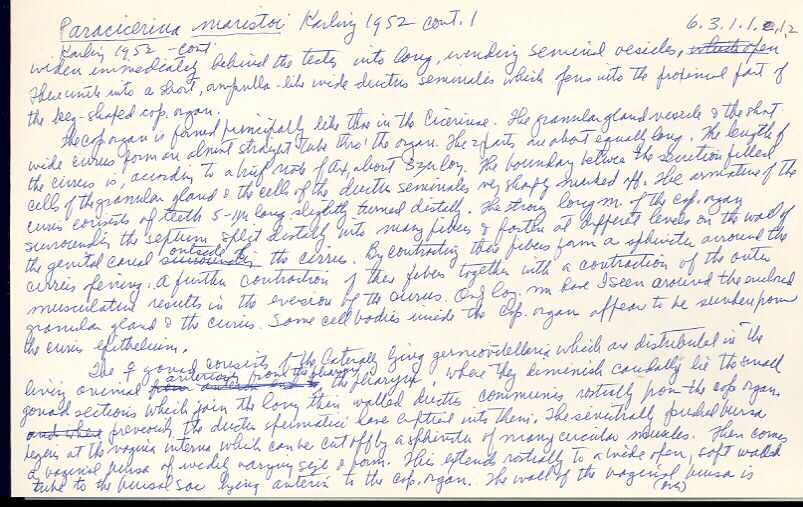 Paracicerina maristoi Karling 1952 cont. 1 6.3.1.1.2.1.2
Karling 1952 - cont
widen immediately behind the testes into long, winding seminal vesicles,
These unite into a short, ampulla-like wide ductus seminales which opens into the proximal part of
the keg-shaped cop. organ.
The cop organ is formed principally like this in the Cicerinae. The granular gland vesicle & the short
wide cirrus form an almost straight tube thro' the organ. The 2 parts are about equally long. The length of
the cirrus is, according to a brief note of Ax, about 32µ long. The boundary between the secretion filled
cells of the granular gland & the cells of the ductus seminales very sharply marked off. The armature of the
cirrus consists of teeth 5-11µ long slightly turned distally. The strong long m. of the cop. organ
surrounding the septum split distally into many fibers & fasten at different levels on the wall of
the genital canal outside the cirrus. By contracting these fibers form a sphincter around the
cirrus opening. A further contraction of these fibers together with a contraction of the outer
musculature results in the eversion of the cirrus. Only long. mm have I seen around the enclosed
granular gland & the cirrus. Some cell bodies inside the cop. organ appear to be sunken from
the cirrus epithelium.
The ♀ gonad consists of the laterally lying germovitellaria which are distributed in the
living animal anteriorly from the pharynx, where they diminish caudally lie the small
gonad sections which join the long thin walled ductus communis rostrally from the cop organ,
previously the ductus spermatici have emptied into them. The ventrally bursa
begins at the vagina interna which can be cut off by a sphincter of many circular muscles. Then comes
a vaginal bursa of widely varying size & form. This extends rostrally to a wide open, soft walled
tube to the bursal sac lying anterior to the cop. organ. The wall of the vaginal bursa is
(over)